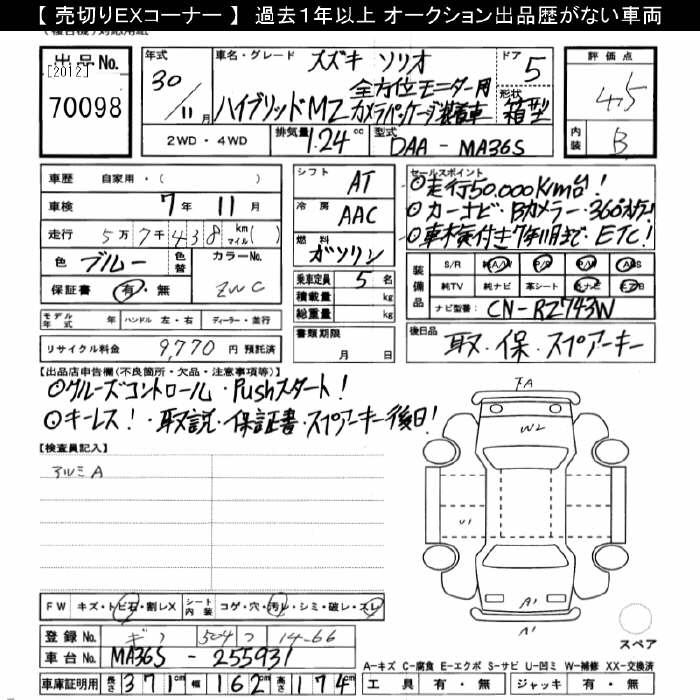 【 売切りEXコーナー 】 過去1年以上 オークション出品歴がない車両
出品No. [2012] 70098
年式 30 / 11月
車名・グレード スズキ ソリオ
ハイブリッドMZ 全方位モニター用
カメラパッケージ装着車
ドア 5 形状 箱型
評価点 4.5
内装 B
2WD・4WD 排気量 1.24 cc 型式 DAA-MA36S
車歴 自家用・( )
車検 7年 11月
走行 5万7千438 km マイル( )
色 ブルー 色替 カラーNo. ZWC
保証書 有・無
モデル年式 年 ハンドル 左・右 ディーラー・並行
リサイクル料金 9,770 円 預託済
シフト AT
冷房 AAC
燃料 ガソリン
乗車定員 5 名
積載量 kg
総重量 kg
書類期限 月 日
セールスポイント
◎走行50,000Km台!
◎カーナビ・Bカメラ・360°カメラ!
◎車検付き7年11月まで ETC!
装備品 S/R 純A/W P/S P/W ABS
純TV 純ナビ 革シート 社ナビ エアB
ナビ型番: CN-RZ743W
後日品 取・保・スペアーキー
【出品店申告欄(不良箇所・欠品・注意事項等)】
◎クルーズコントロール・Pushスタート!
◎キーレス!・取説・保証書・スペアーキー後日!
【検査員記入】
アルミA
FA
W2
U1
A1
スペア
FW キズ・トビ石・割レX シート内装 コゲ・穴・汚レ・シミ・破レ・スレ
登録No. ギフ 504 つ 14-66
車台No. MA36S - 255931
車庫証明用 長さ 371cm 幅 162cm 高さ 174cm
A-キズ C-腐食 E-エクボ S-サビ U-凹ミ W-補修 XX-交換済
工具 有・無 ジャッキ 有・無